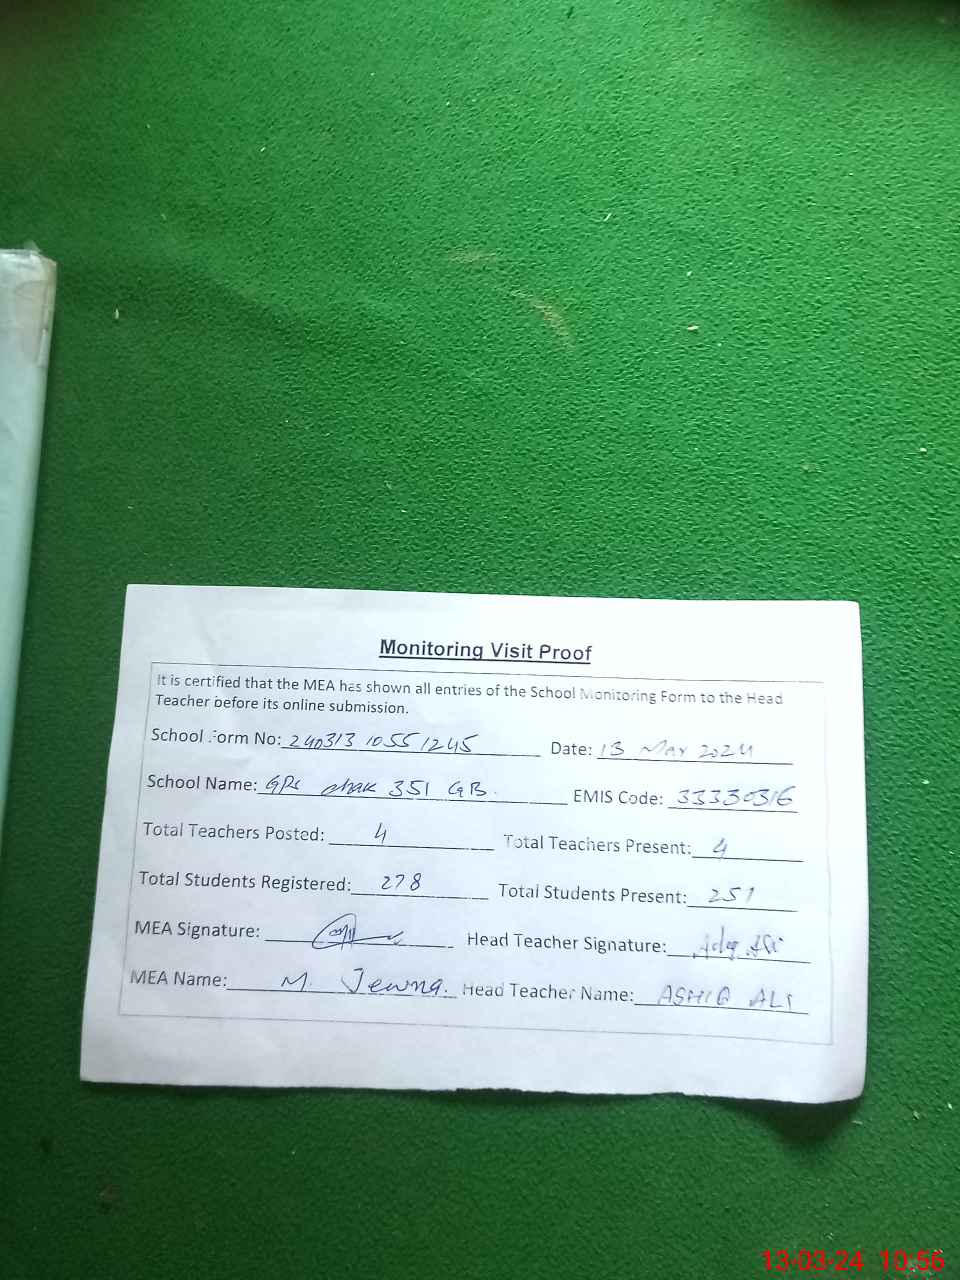 Monitoring Visit Proof
It is certified that the MEA has shown all entries of the School Monitoring Form to the Head
Teacher before its online submission.
School Form No: 240313 1055 1245 Date: 13 Mar 2024
School Name: GPS chak 351 GB. EMIS Code: 33330316
Total Teachers Posted: 4 Total Teachers Present: 4
Total Students Registered: 278 Total Students Present: 251
MEA Signature: Head Teacher Signature:
MEA Name: M. Head Teacher Name: ASHIQ ALI
13-03-24 10:56